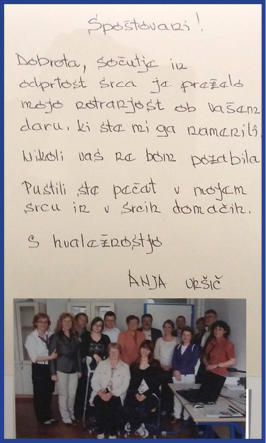 Spoštovani!
Dobrota, sočutje in
odprtost srca je prežela
mojo notranjost ob vašem
daru, ki ste mi ga namenili.
Nikoli vas ne bom pozabila.
Pustili ste pečat v mojem
srcu in v srcih domačih.
S hvaležnostjo
ANJA URŠIČ